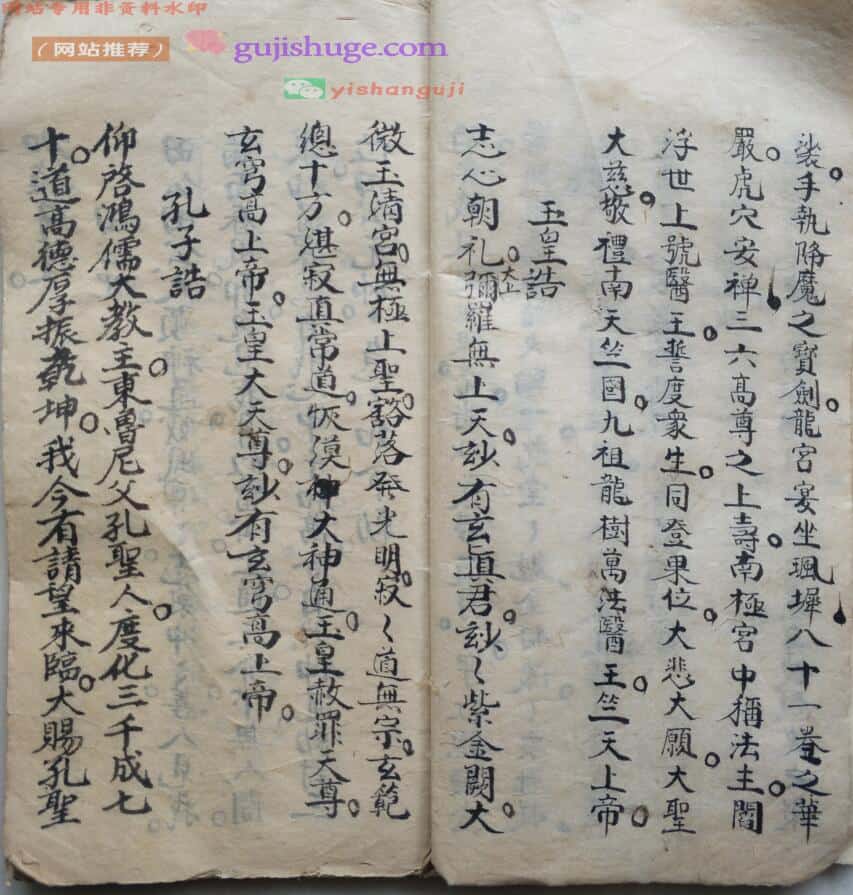 网站专用非资料水印
（网站推荐）
gujishuge.com
yishanguji
裟手執降魔之寶劍龍宮宴坐珮墀八十一卷之華
嚴虎穴安禪三六高尊之上壽南極宮中稱法主閻
浮世上號醫王誓度衆生同登果位大悲大願大聖
大慈敬禮南天竺國九祖龍樹萬法醫王竺天上帝
玉皇誥
志心朝礼彌羅無上天玅有玄眞君玅〻紫金闕大
太上
微玉清宮無極上聖豁落發光明寂〻道無宗玄範
總十方湛寂直常道恢漠神大神通玉皇赦罪天尊
玄穹高上帝玉皇大天尊玅有玄穹高上帝
孔子誥
仰啓鴻儒大教主東魯尼父孔聖人度化三千成七
十道高德厚振乾坤我今有請望來臨大賜孔聖